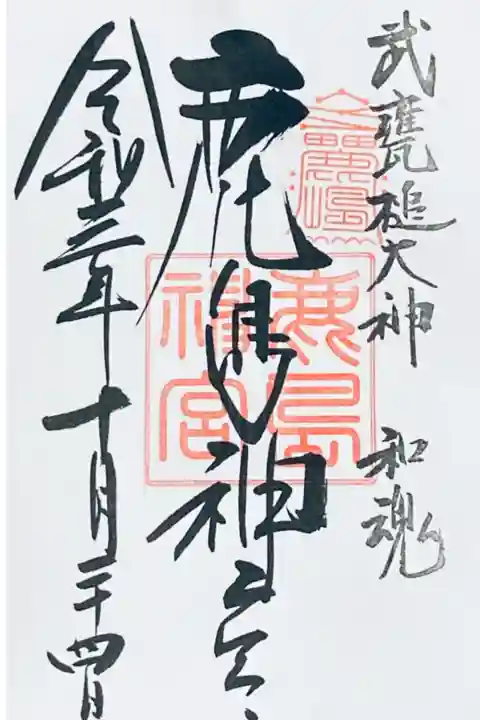 武甕槌大神 和魂
鹿島神宮
令和三年十月二十四日
鹿島
神宮